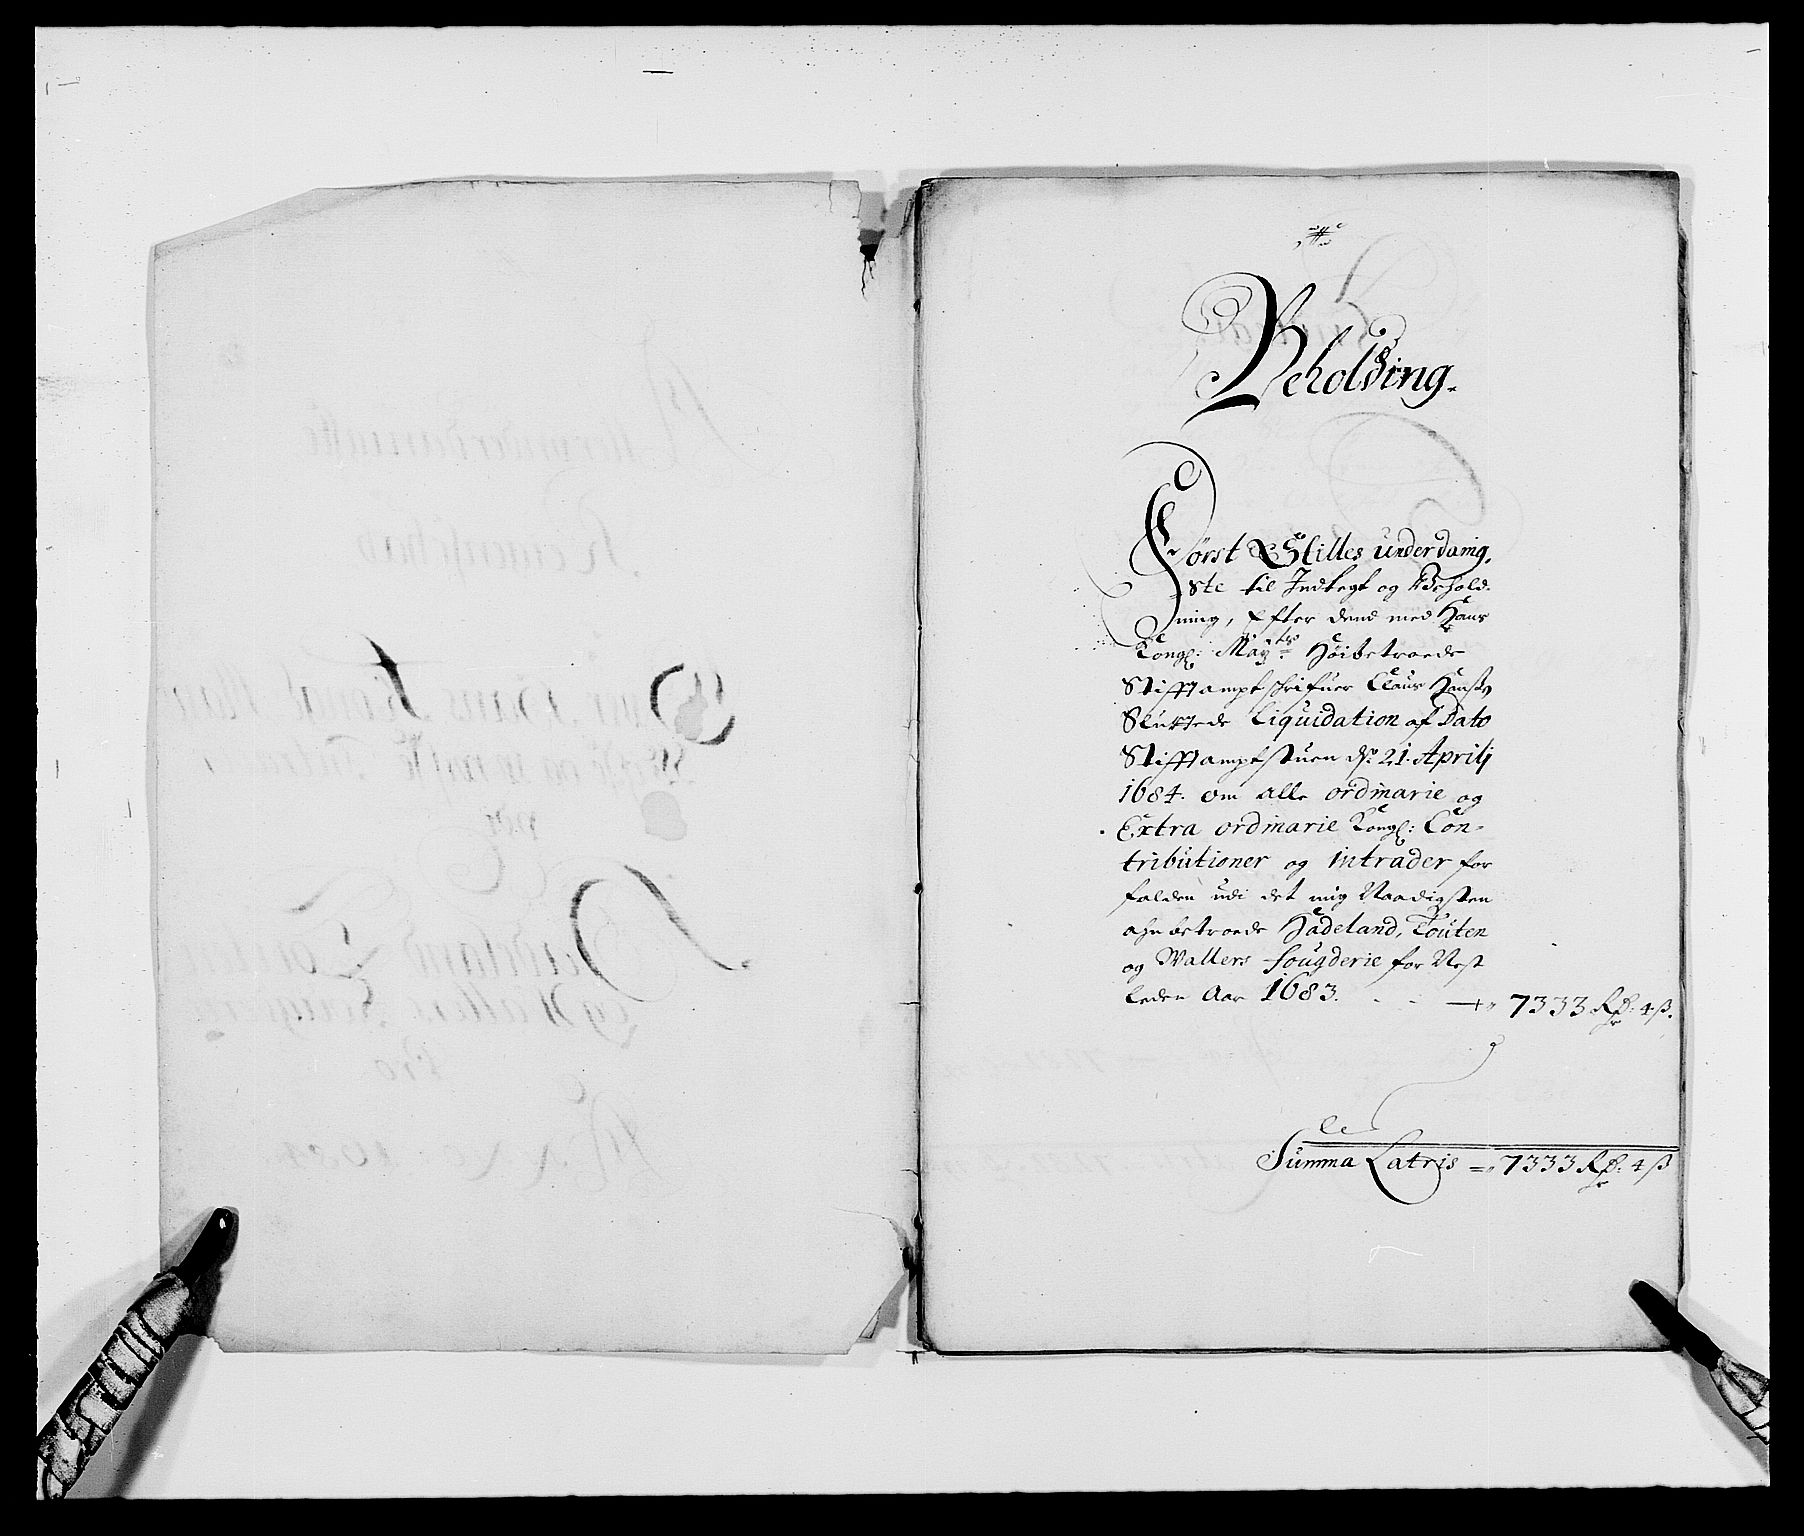 Beholding.
Först Stilles underdanig,
ste til Indtegt og Behold-
ning, Efter dend med Hans
Kongl: Mayts: Höibetroede
Stifftamptschrifuer Claus Hansøn
Sluttede Liquidation af Dato
Stifftamptstuen ds: 21. Aprilj
1684. om alle ordinarie og
Extra ordinarie Kongl: Con-
tributioner og intrader for
falden udi det mig Naadigsten
anbetroede Hadeland, Touten
og Walders fougderie for Nest
leden Aar 1683. - - - 7333 Rdr: 4 ß.
Summa Latris = 7333 Rdr: 4 ß